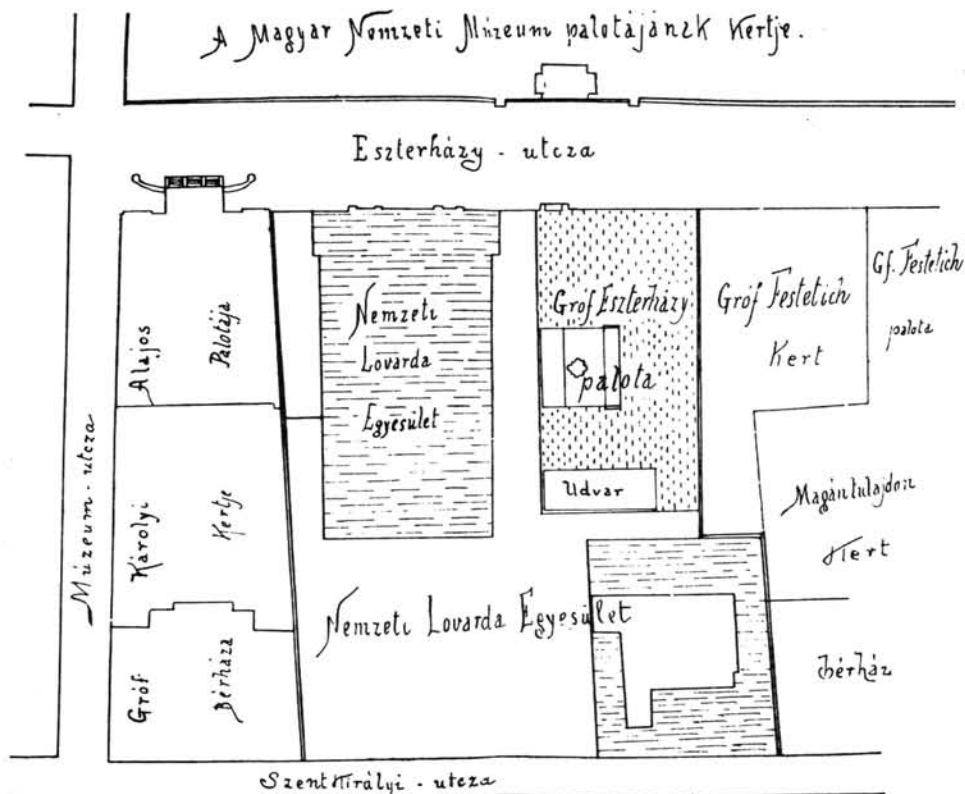 A Magyar Nemzeti Múzeum palotájának Kertje.
Eszterházy - utcza
Múzeum - utcza
Gróf Károlyi Alajos
Palotája
Kertje
Bérháza
Nemzeti
Lovarda
Egyesület
Gróf Eszterházy
palota
Udvar
Gróf Festetich
Kert
Gf. Festetich
palota
Magántulajdon
Kert
Nemzeti Lovarda Egyesület
bérház
Szentkirályi - utcza